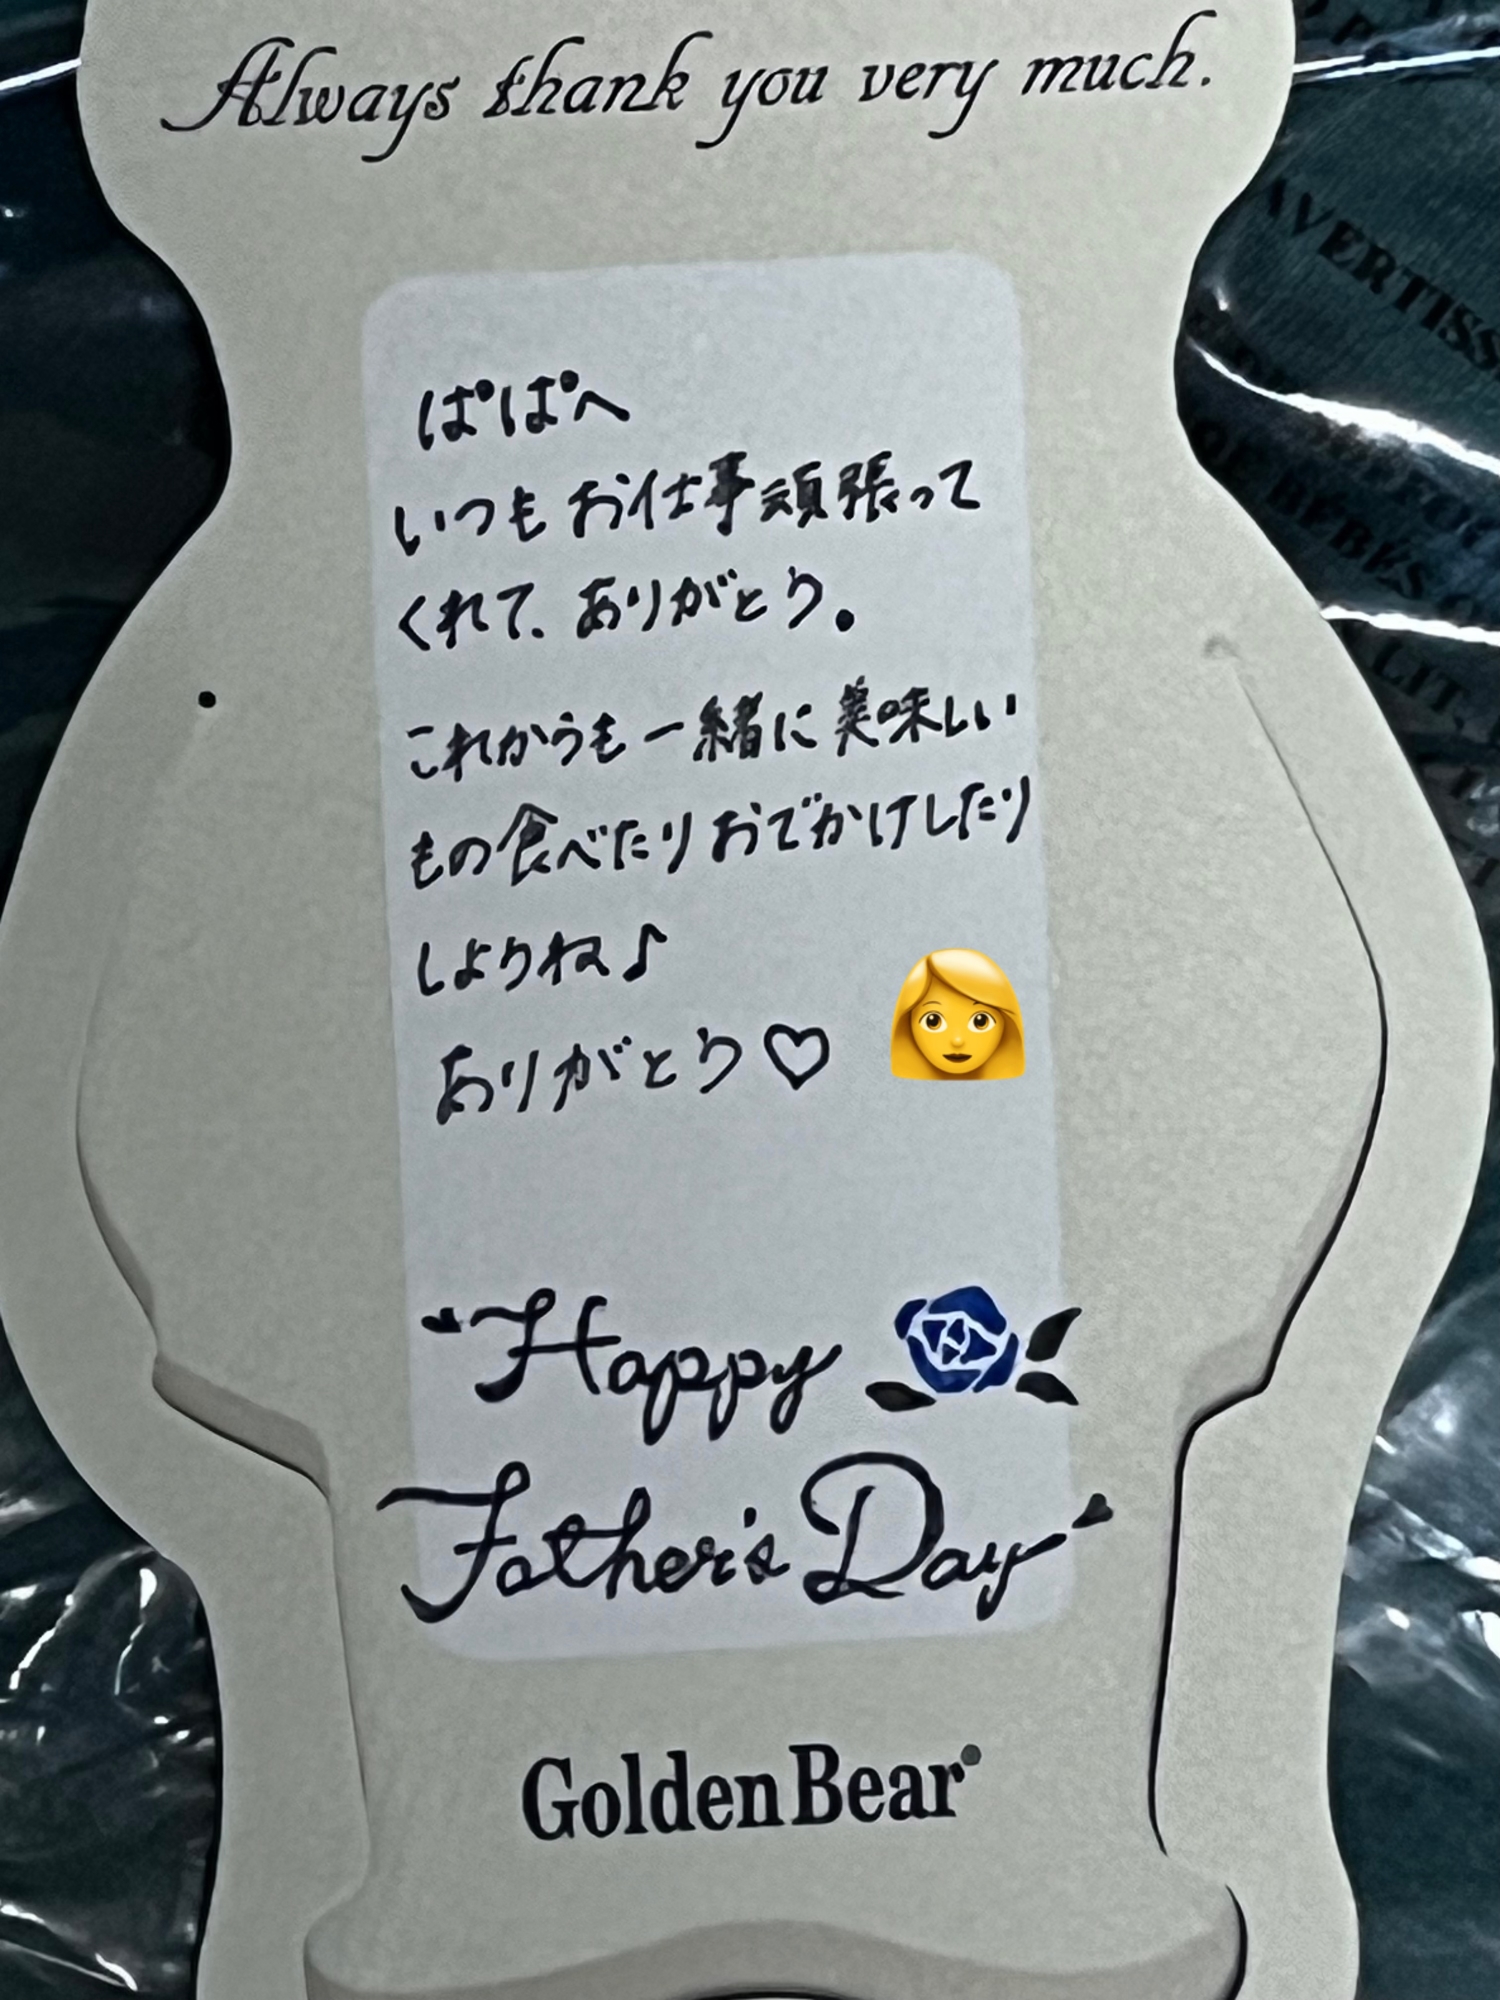 Always thank you very much.
ぱぱへ
いつもお仕事頑張って
くれて、ありがとう。
これからも一緒に美味しい
もの食べたりおでかけしたり
しようね♪
ありがとう♡
"Happy
Father's Day"
GoldenBear
AVERTISS
DE BÉBÉS
LIT,